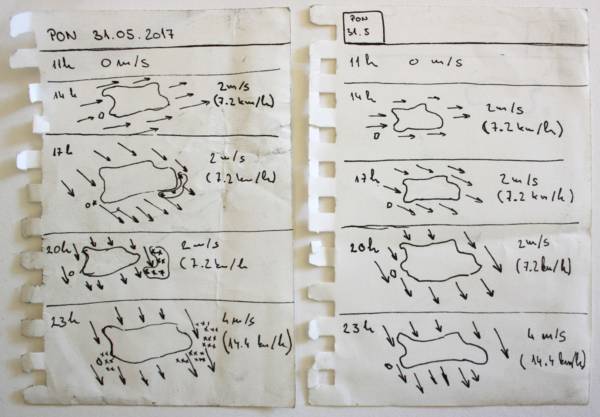 PON 31.05.2017
11h 0 m/s
14h 2m/s
(7.2 km/h)
17h 2 m/s
(7.2 km/h)
20h 2 m/s
(7.2 km/h
23h 4 m/s
(14.4 km/h)
PON
31.5
11h 0 m/s
14h 2m/s
(7.2 km/h)
17h 2 m/s
(7.2 km/h)
20h 2m/s
(7.2 km/h)
23h 4 m/s
(14.4 km/h)